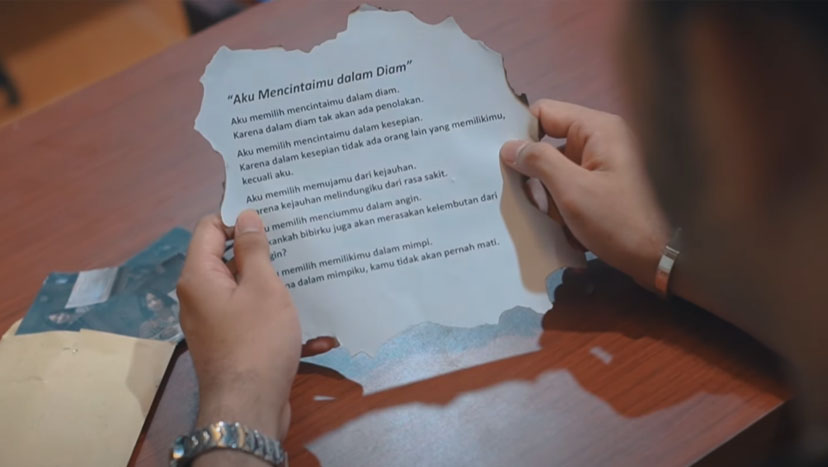 “Aku Mencintaimu dalam Diam”
Aku memilih mencintaimu dalam diam.
Karena dalam diam tak akan ada penolakan.
Aku memilih mencintaimu dalam kesepian.
Karena dalam kesepian tidak ada orang lain yang memilikimu,
kecuali aku.
Aku memilih memujamu dari kejauhan.
arena kejauhan melindungiku dari rasa sakit.
u memilih menciummu dalam angin.
kankah bibirku juga akan merasakan kelembutan dari
gin?
memilih memilikimu dalam mimpi.
na dalam mimpiku, kamu tidak akan pernah mati.